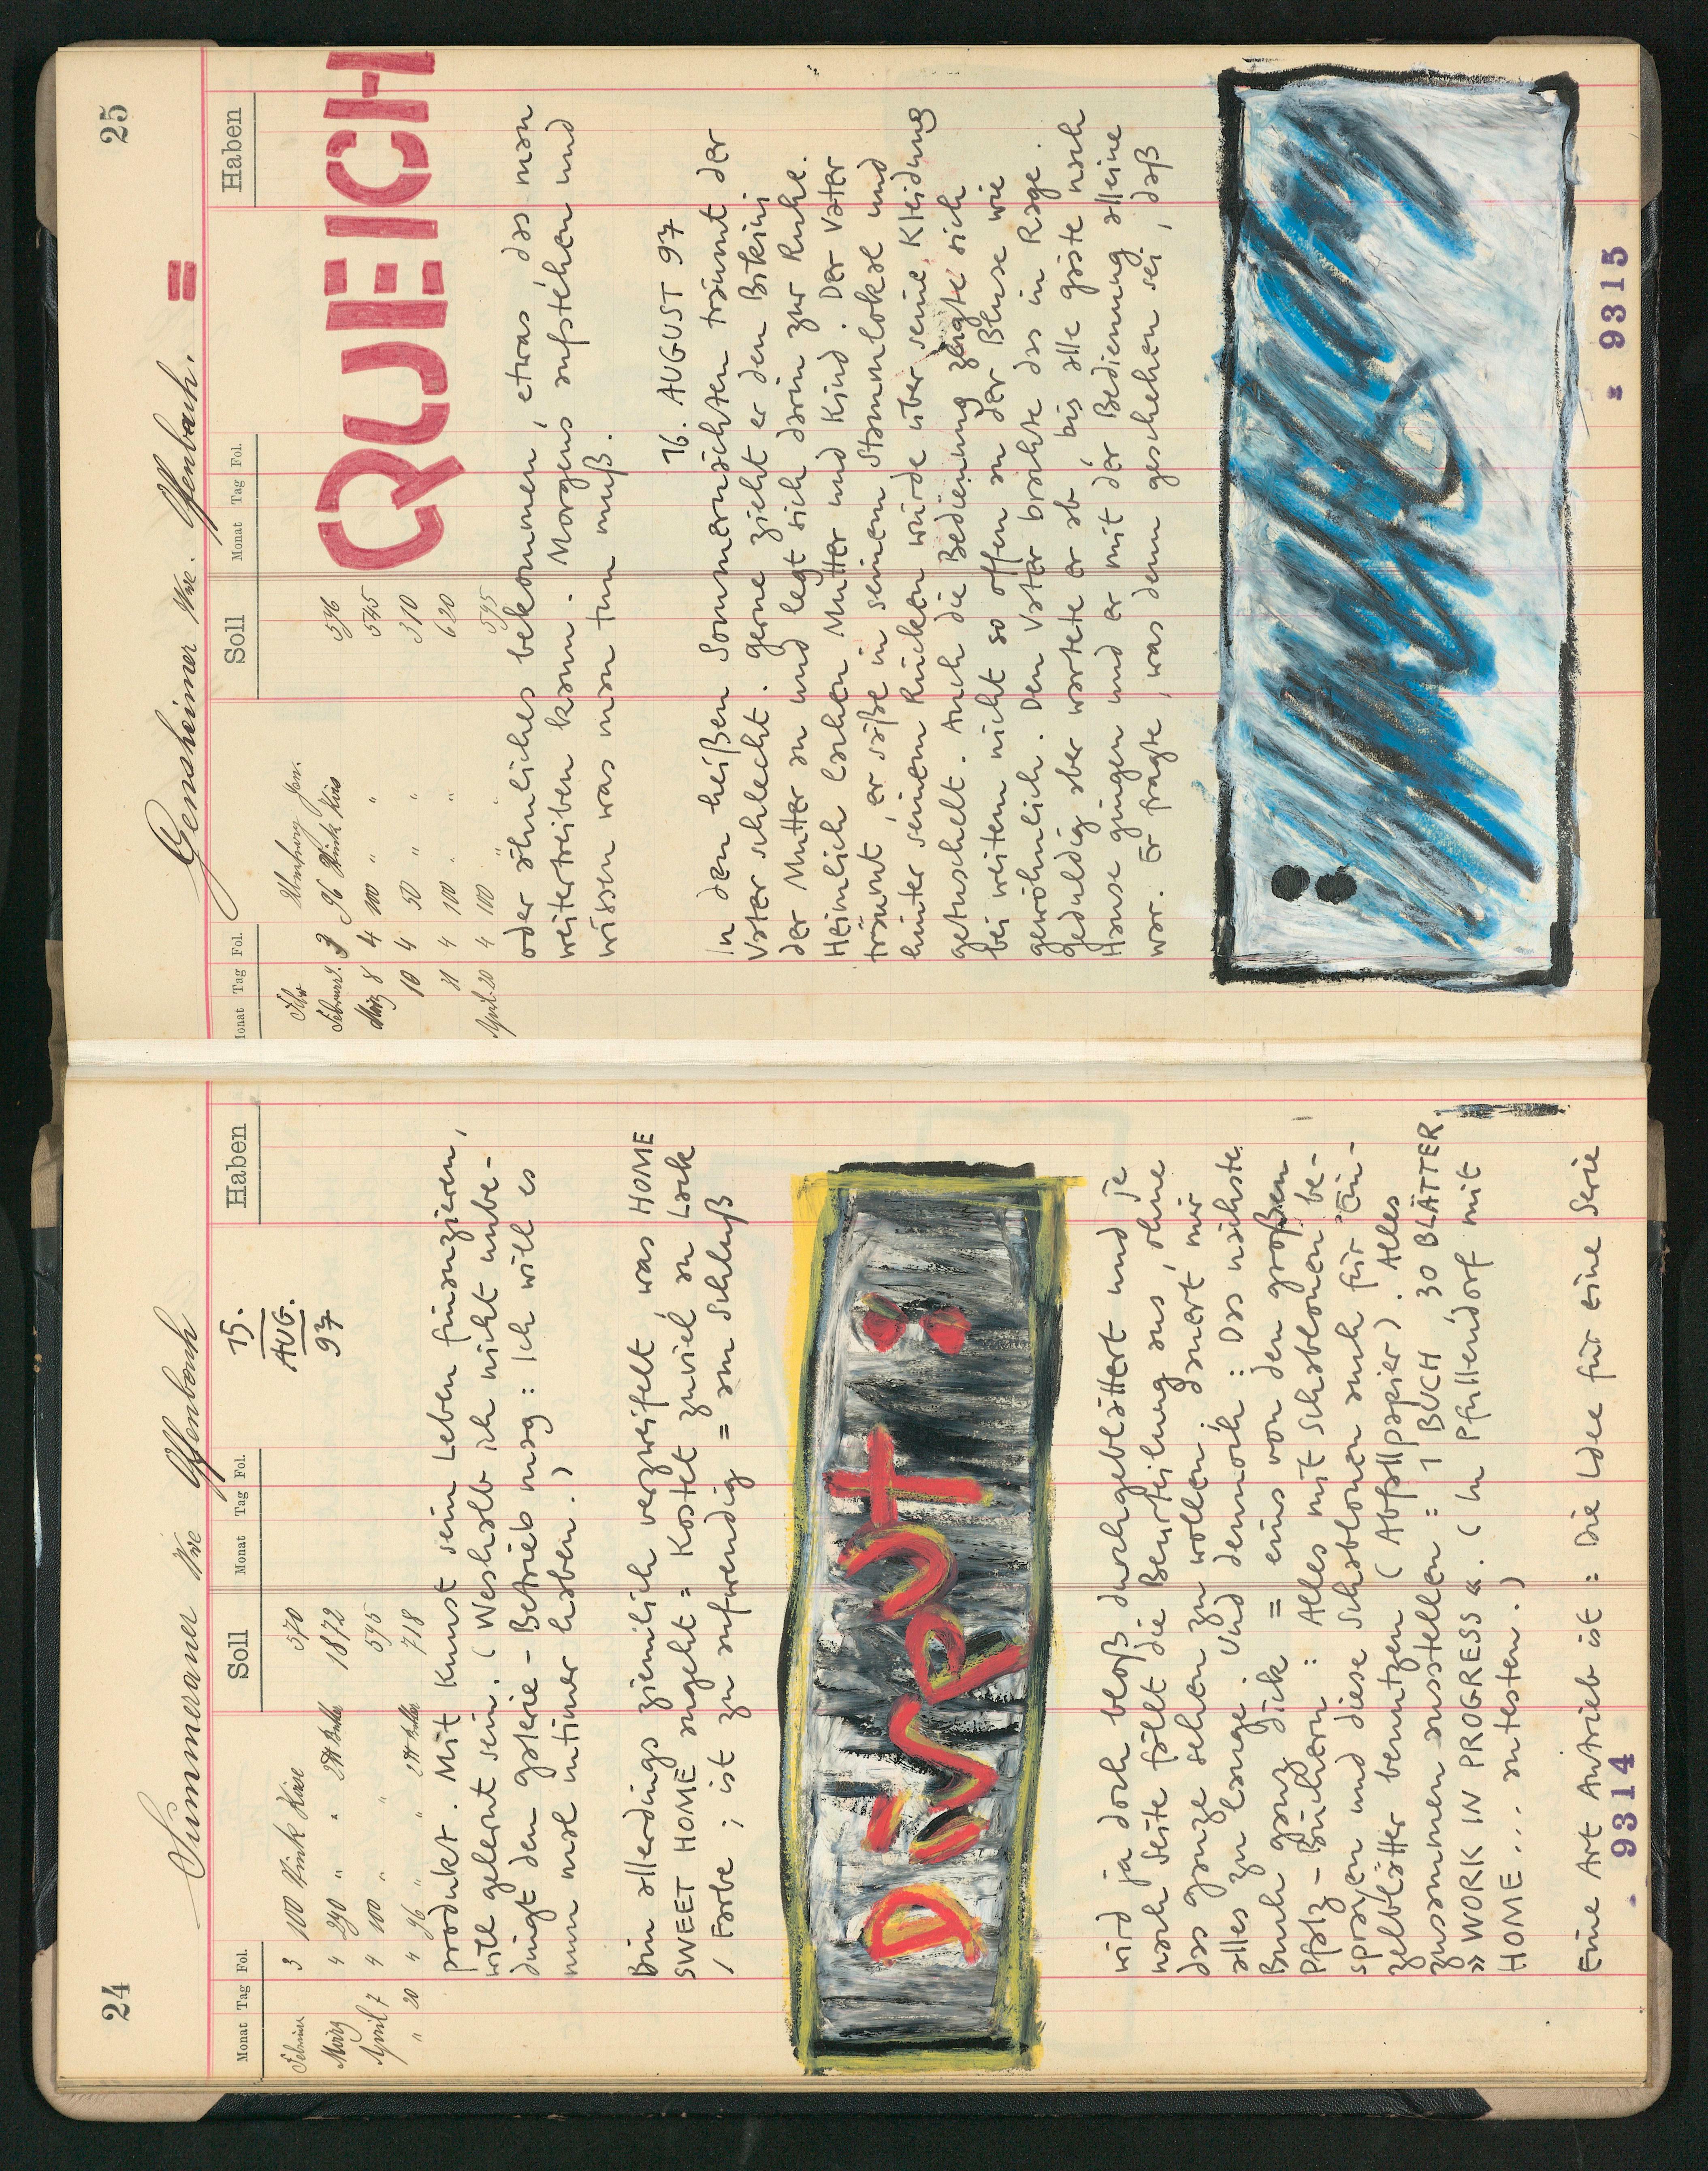 24
Summeraner Wwe Offenbach
Monat Tag Fol. Soll Monat Tag Fol. Haben
Februar 3 100 Kirsch Kiese 570
März 4 290 " " 1872
April 7 4 100 " " 595
" 20 4 96 " " 718
15.
AUG.
97
produkt. Mit Kunst sein Leben finanzieren,
will gelernt sein. (Weshalb ich nicht unbe-
dingt den Galerie-Betrieb mag: Ich will es
nun mal intimer haben.)
Bin allerdings ziemlich verzweifelt, was HOME
SWEET HOME angeht = Kostet zuviel an Lack
/ Farbe ; ist zu aufwendig = am Schluß
DISPUT :
wird ja doch bloß durchgeblättert und je
nach Seite fällt die Beurteilung aus, ohne
das ganze sehen zu wollen ; dauert mir
alles zu lange. Und dennoch : Das nächste
Buch ganz dick = eins von den großen
Pfalz-Büchern : Alles mit Schablonen be-
sprayen und diese Schablonen auch für Ein-
zelblätter benutzen (Abfallpapier). Alles
zusammen ausstellen : 1 BUCH 30 BLÄTTER
» WORK IN PROGRESS «. (In Pfullendorf mit
HOME... antesten.)
Eine Art Antrieb ist : Die Idee für eine Serie
9314
25
Gensheimer Wwe. Offenbach. =
Monat Tag Fol. Soll Monat Tag Fol. Haben
Februar 3 96 576
März 8 4 100 " " 595
10 4 50 " " 310
31 4 100 " " 620
April 20 4 100 " " 595
QUEICH
oder ähnliches bekommen, etwas, das man
weitertreiben kann. Morgens aufstehen und
wissen was man tun muß.
16. AUGUST 97
In den heißen Sommernächten träumt der
Vater schlecht. Gerne zieht er den Bikini
der Mutter an und legt sich darin zur Ruhe.
Heimlich lachen Mutter und Kind. Der Vater
träumt, er säße in seinem Stammlokal und
hinter seinem Rücken würde über seine Kleidung
getuschelt. Auch die Bedienung zeigte sich
bei weitem nicht so offen an der Bluse wie
gewöhnlich. Den Vater brachte das in Rage.
Geduldig aber wartete er ab, bis alle Gäste nach
Hause gingen und er mit der Bedienung alleine
war. Er fragte, was denn geschehen sei, daß
9315